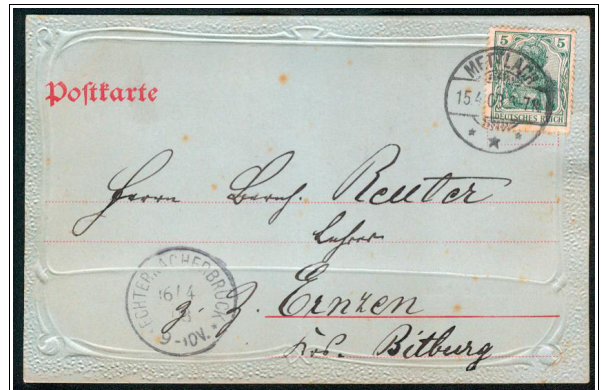 Postkarte
5 5
DEUTSCHES REICH
METTLACH
15.4.08.6-7N
Herrn Bernh. Reuter
Lehrer
z. Z. Ernzen
Krs. Bitburg
ECHTERNACHERBRÜCK
16/4
9-10V.